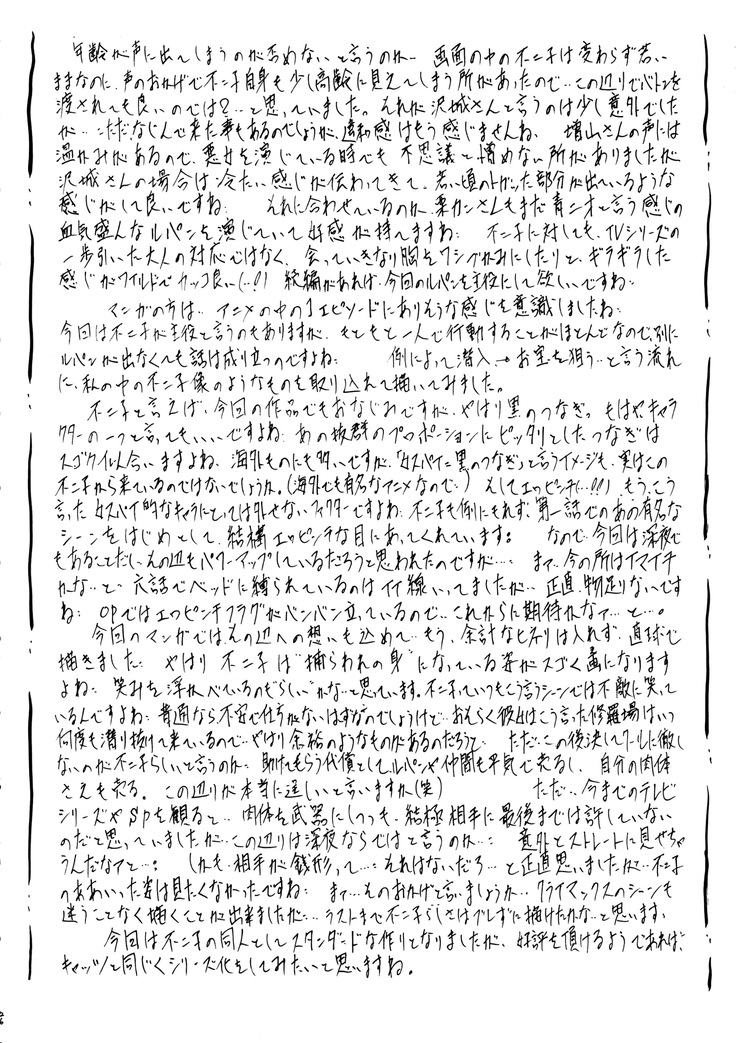 年齢が声に出てしまうのが否めないと言うのか… 画面の中の不二子は変わらず若い
ままなのに、声のおかげで不二子自身も少し高齢に見えてしまう所があったので…この辺りでバトンを
渡されても良いのでは?…と思っていました。それが沢城さんと言うのは少し意外でした
が…ただなじんで来た事もあるのでしょうが、違和感はもう感じませんね、 増山さんの声には
温かみがあるので、悪女を演じている時でも 不思議と憎めない所がありましたが
沢城さんの場合は冷たい感じが伝わってきて、若い頃のトガった部分が出ているような
感じがして良いですね それに合わせているのか、栗カンさんもまだ青二才と言う感じの
血気盛んなルパンを演じていて好感が持てますね 不二子に対しても、TVシリーズの
一歩引いた大人の対応ではなく、会っていきなり胸をワシづかみにしたりと、ギラギラした
感じがワイルドでカッコ良い(…!!) 続編があれば、今回のルパンを主役にして欲しいですね
マンガの方は… アニメの中の1エピソードにありそうな感じを意識しましたね
今回は不二子が主役と言うのもありますが、もともと一人で行動することがほとんどなので、別に
ルパンが出なくても話は成り立つのですよね 例によって潜入→お宝を狙う…と言う流れ
に、私の中の不二子像のようなものを取り込んで描いてみました。
不二子と言えば、今回の作品でもおなじみですが、やはり黒のつなぎ。もはやキャラ
クターの一つと言ってもいいですよね あの抜群のプロポーションにピッタリとしたつなぎは
スゴク似合いますよね、海外ものにも多いですが、「女スパイに黒のつなぎ」と言うイメージも、実はこの
不二子から来ているのではないでしょうか。(海外でも有名なアニメなので…) そしてエッピンチ(…!!!) もう、こう
言った女スパイ的なキャラにとっては外せないファクターですよね 不二子も例にもれず、第一話でのあの有名な
シーンをはじめとして、結構エッピンチな目にあってくれています なので、今回は深夜で
もあることだし、その辺もパワーアップしているだろうと思われたのですが… まぁ、今の所はイマイチ
かな…と… 六話でベッドに縛られているのはイイ線いってましたが… 正直、物足りないです
ね OPではエッピンチフラグがバンバン立っているので…これからに期待かなァ…と…。
今回のマンガでは、その辺への想いも込めて… もう、余計なヒネリは入れず、直球で
描きました やはり 不二子は"捕らわれの身"になっている姿がスゴく画になります
よね 笑みを浮かべているのも"らしい"かな…と思っています。不二子っていつもこう言うシーンでは不敵に笑って
いるんですよね 普通なら不安で仕方がないはずなのでしょうけど…おそらく彼女はこう言った修羅場はいつ
何度も潜り抜けて来ているので…やはり余裕のようなものがあるのだろうと… ただ、この後決してクールに徹し
ないのが不二子らしいと言うのか 助けてもらう代償として、ルパンや仲間も平気で売るし、自分の肉体
さえも売る。この辺りが本当に逞しいと言いますか(笑) ただ…今までのテレビ
シリーズやSPを観ると… 肉体を武器にしつつも、結極相手に最後までは許していない
のだと思っていましたが…この辺りは深夜ならではと言うのか… 意外とストレートに見せちゃ
うんだなァと… しかも、相手が銭形って… それはないだろ…と正直思いましたが…不二子
のああいった姿は見たくなかったですね まぁ…そのおかげと言いましょうか…クライマックスのシーンも
迷うことなく描くことが出来ましたが… ラストまで不二子らしさはブレずに描けたかな…と思います。
今回は不二子の同人としてスタンダードな作りとなりましたが、好評を頂けるようであれば、
キャッツと同じくシリーズ化をしてみたいと思いますね。